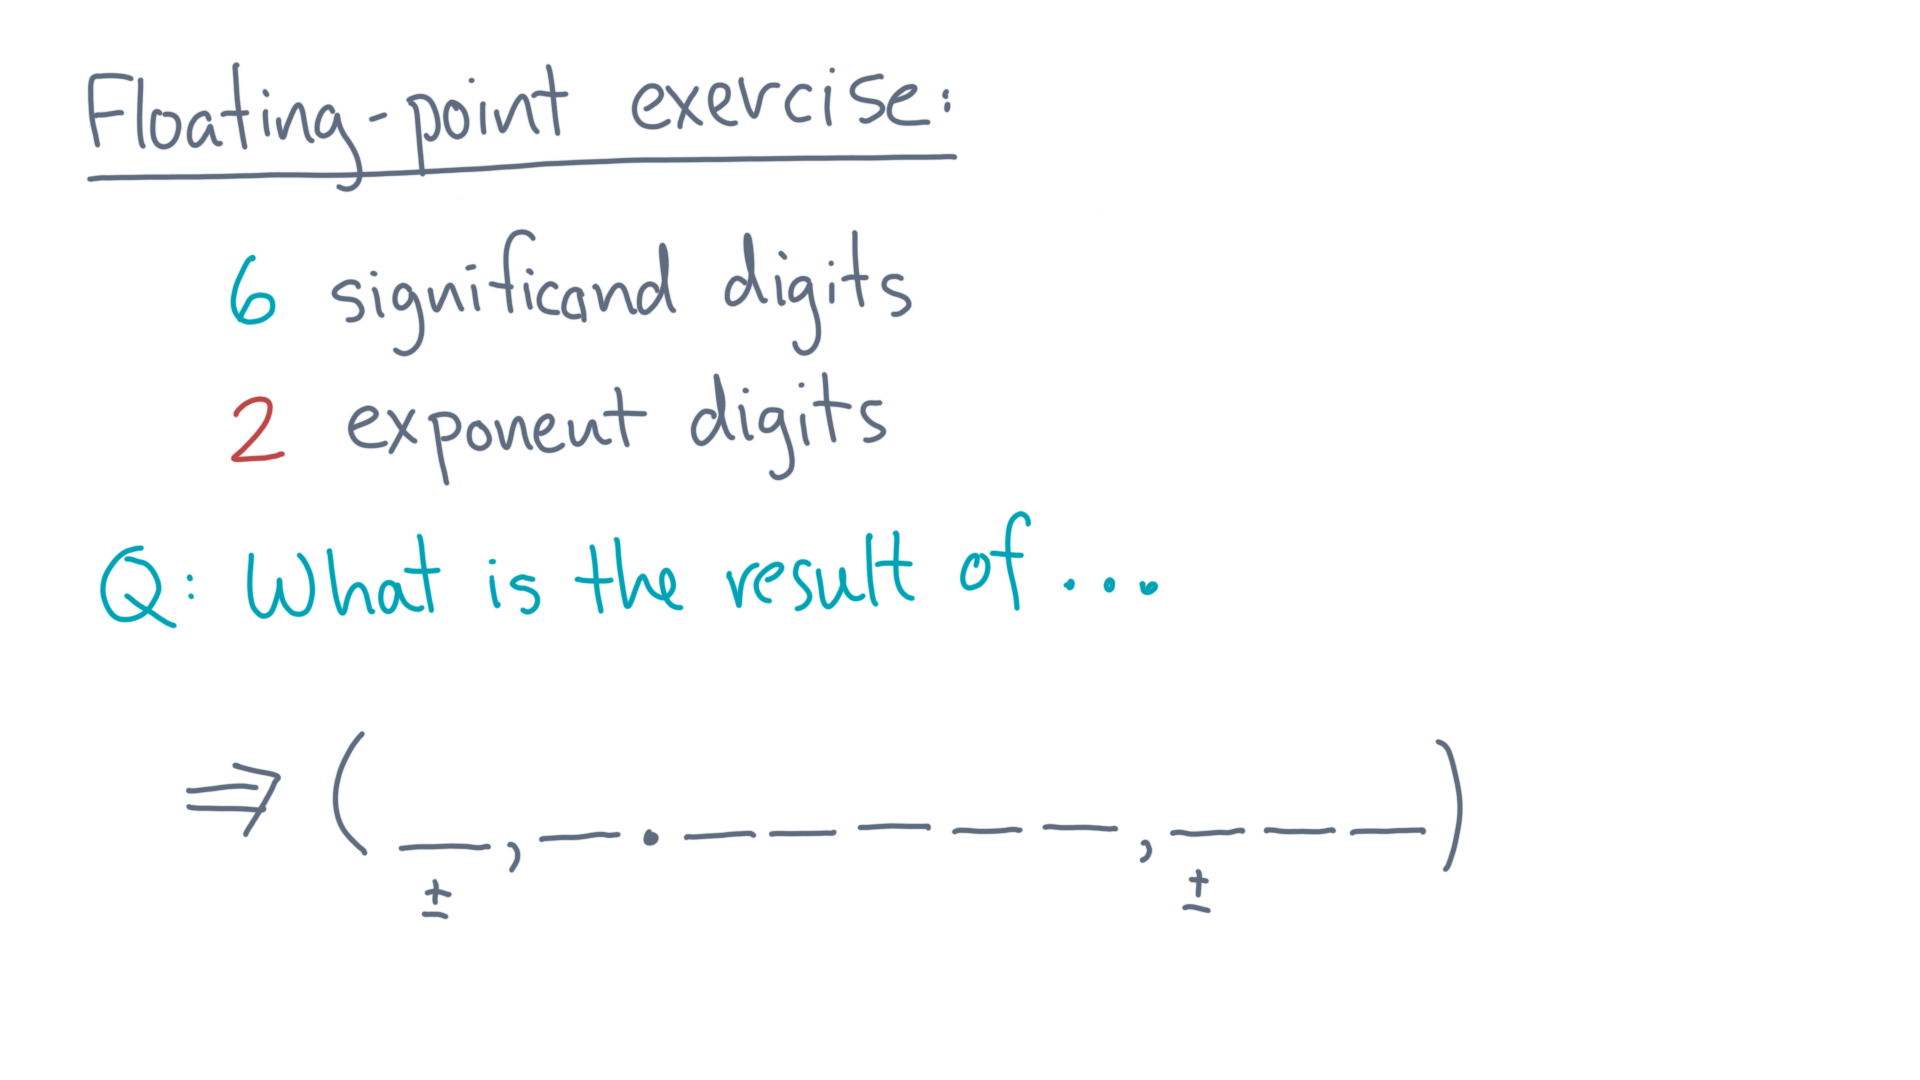 Floating-point exercise:
6 significand digits
2 exponent digits
Q: What is the result of ...
⇒ ( _ , _ . _ _ _ _ _ , _ _ _ )
± ±